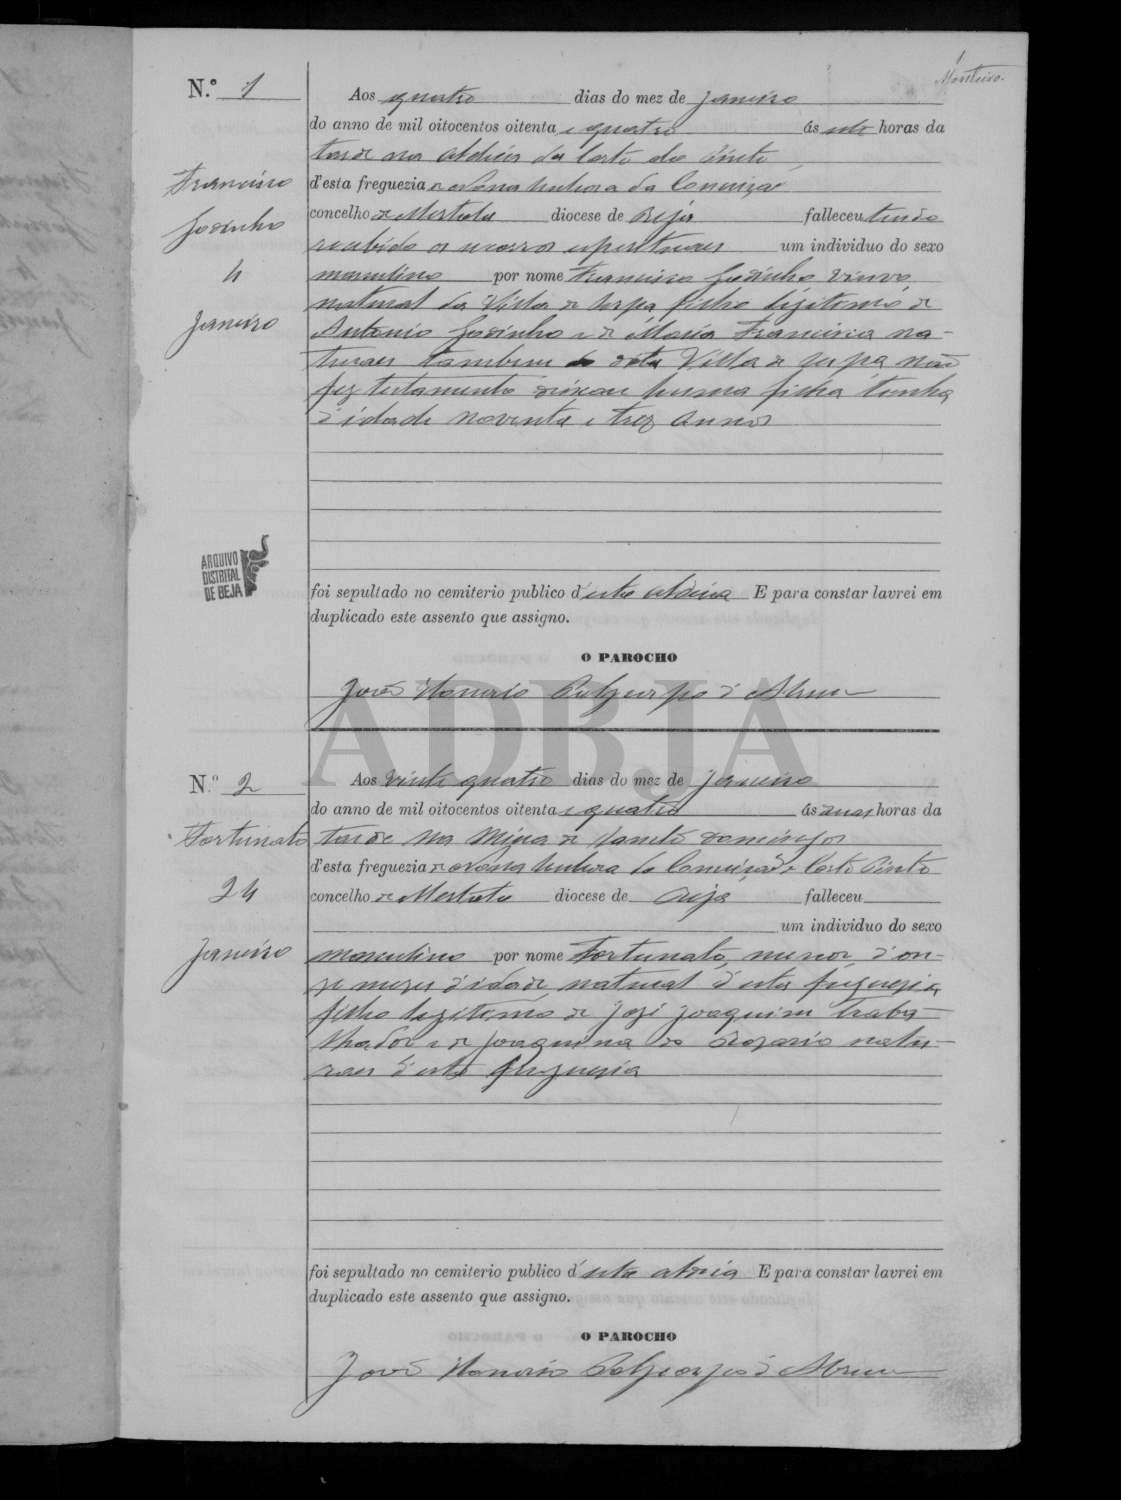 1
Monteiro
N.º 1
Aos quatro dias do mez de Janeiro
do anno de mil oitocentos oitenta e quatro ás sete horas da
tarde na aldeia da Corte do Pinto
d'esta freguezia de Nossa Senhora da Conceição
concelho de Mertola diocese de Beja falleceu tendo
recebido os socorros espirituaes um individuo do sexo
masculino por nome Francisco Godinho viuvo
natural da Villa de Serpa filho legitimo de
Antonio Godinho e de Maria Francisca na-
turaes tambem da dita Villa de Serpa não
fez testamento deixou huma filha tinha
d'idade noventa e trez annos
Francisco
Godinho
4
Janeiro
ARQUIVO
DISTRITAL
DE BEJA
foi sepultado no cemiterio publico d'esta aldeia E para constar lavrei em
duplicado este assento que assigno.
O PAROCHO
José Honorio d'Abreu
ADBJA
N.º 2
Aos vinte quatro dias do mez de Janeiro
do anno de mil oitocentos oitenta e quatro ás duas horas da
tarde na Mina de Sancto Domingos
d'esta freguezia de Nossa Senhora da Conceição de Corte Pinto
concelho de Mertola diocese de Beja falleceu
um individuo do sexo
masculino por nome Fortunato, menor, d'on-
ze mezes d'idade, natural d'esta freguezia
filho legitimo de José Joaquim traba-
lhador e de Joaquina do Rozario natu-
raes d'esta freguezia
Fortunato
24
Janeiro
foi sepultado no cemiterio publico d'esta aldeia E para constar lavrei em
duplicado este assento que assigno.
O PAROCHO
José Honorio d'Abreu